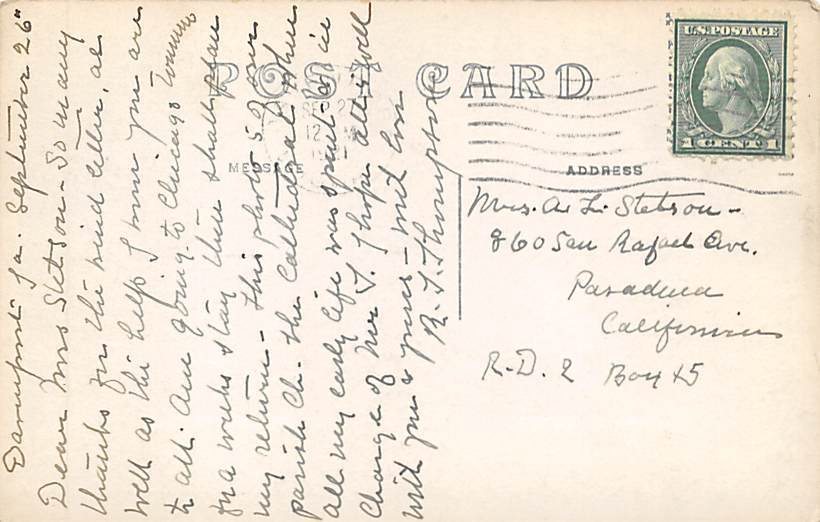 POST CARD
MESSAGE
ADDRESS
U.S. POSTAGE
1 CENT 1
Davenport Ia. September 26"
Dear Mrs Stetson - So many
thanks for the kind letter, as
well as the help I sure you are
to all. Am going to Chicago tomorrow
for a weeks stay then shall plan
my return - This photo is of our
parish Ch. the Cathedral where
all my early life was spent - in
charge of Mr. T. I hope all is well
with you & yours - with love
R. T. Thompson
Mrs. A. L. Stetson -
860 San Rafael Ave.
Pasadena
California
R.D. 2 Box 45